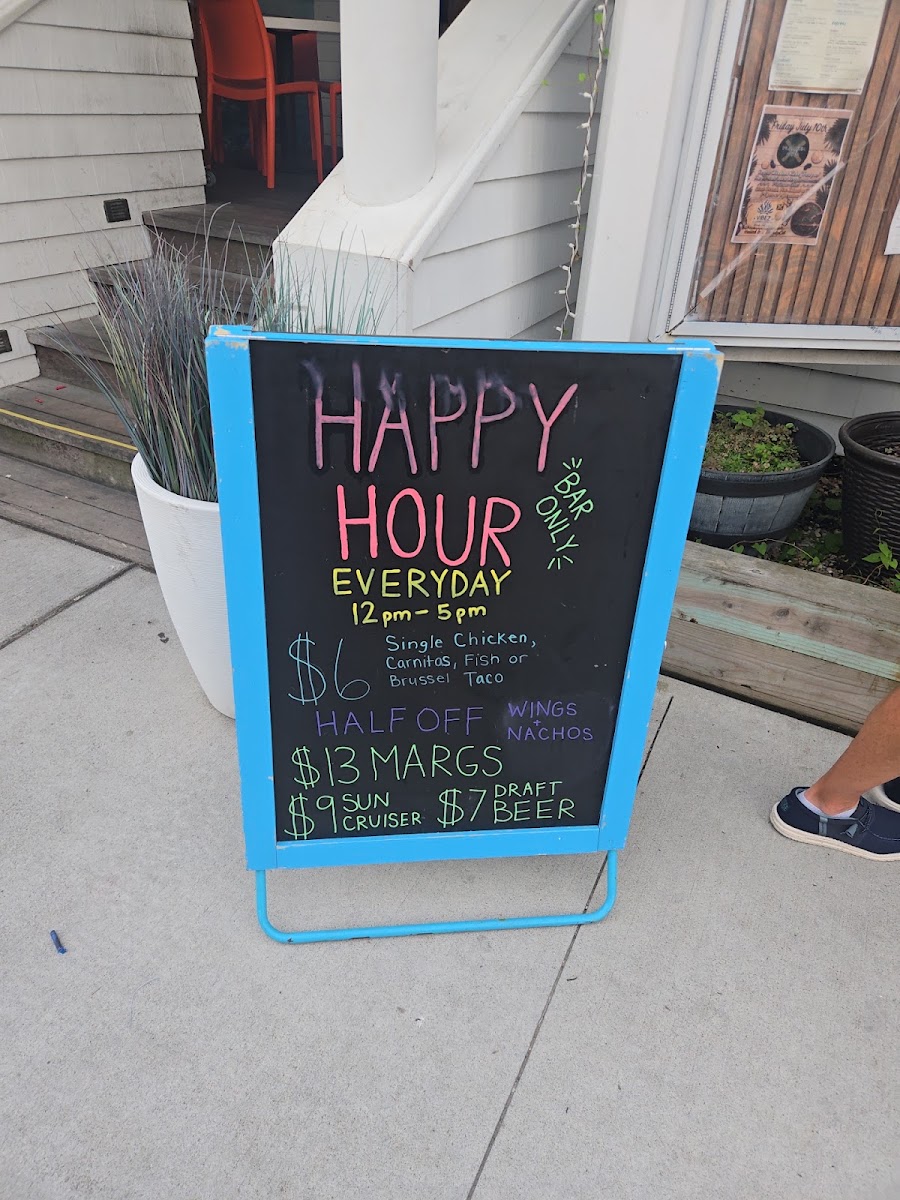 Friday July 10th
HAPPY
HOUR
BAR
ONLY
EVERYDAY
12pm-5pm
$6
Single Chicken,
Carnitas, Fish or
Brussel Taco
HALF OFF
WINGS
+
NACHOS
$13 MARGS
$9 SUN
CRUISER
$7 DRAFT
BEER